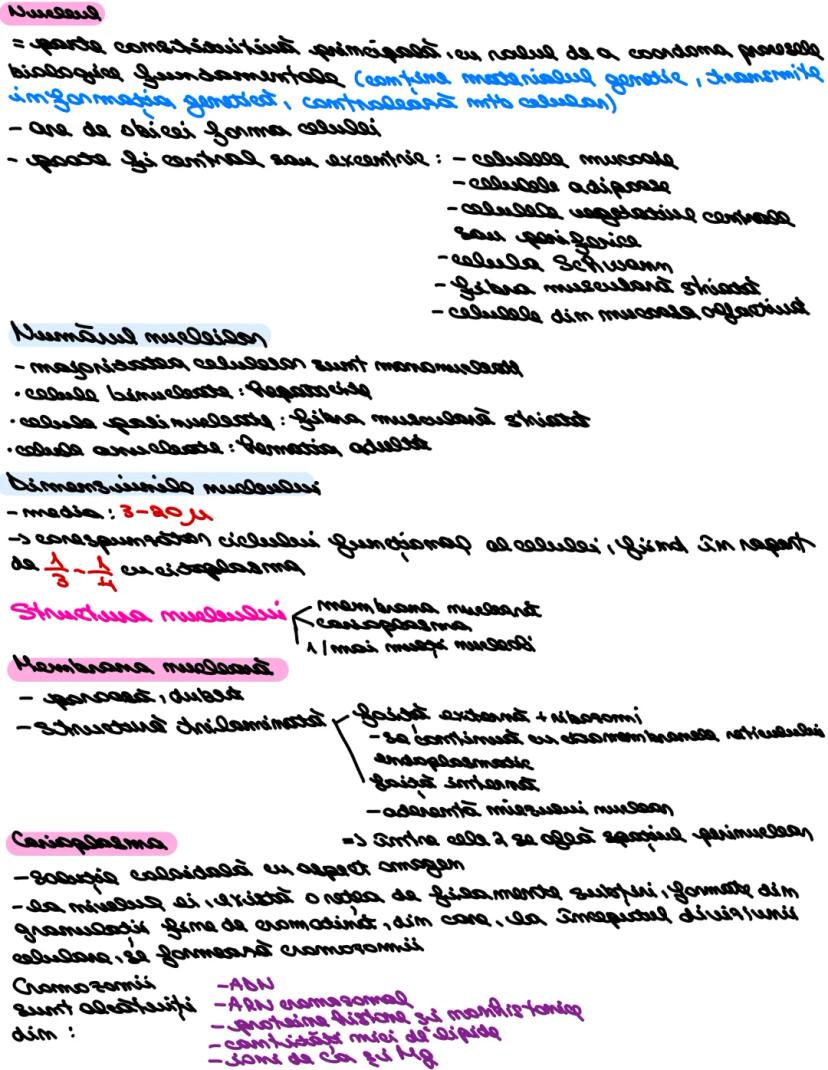 Nucleul
= parte constitutivă principală, cu rolul de a coordona procesele
biologice fundamentale (conține materialul genetic, transmite
informația genetică, controlează mtb celular)
- are de obicei forma celulei
- poate fi central sau excentric : - celulele mucoase
- celulele adipoase
- celulele vegetative centrale
sau periferice
- celula Schwann
- fibra musculară striată
- celulele din mucoasa olfactivă
Numărul nucleilor
- majoritatea celulelor sunt mononucleate
· celule binucleate : hepatocite
· celule polinucleate : fibra musculară striată
· celule anucleate : hematia adultă
Dimensiunile nucleului
- media : 3-20 μ
-> corespunzător ciclului funcțional al celulei, fiind în raport
de 1/3 - 1/4 cu citoplasma
Structura nucleului
membrana nucleară
carioplasma
1/mai mulți nucleoli
Membrana nucleară
- poroasă, dublă
- structură trilaminată
foiță externă + ribozomi
- se continuă cu membranele reticulului
endoplasmatic
foiță internă
- aderentă miezului nuclear
=> între cele 2 se află spațiul perinuclear
Carioplasma
- soluție coloidală cu aspect omogen
- la nivelul ei, există o rețea de filamente subțiri, formate din
granulații fine de cromatină, din care, la începutul diviziunii
celulare, se formează cromozomii
Cromozomii
sunt alcătuiți
dim :
- ADN
- ARN cromozomal
- proteine histone și nonhistonice
- cantități mici de lipide
- ioni de Ca și Mg